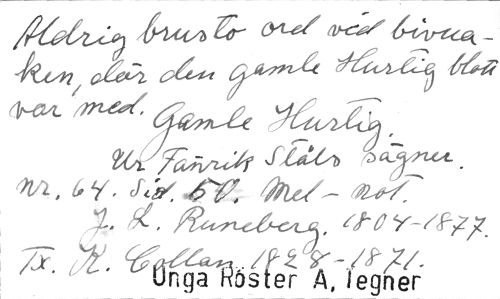 Aldrig brusto ord vid bivua-
ken, där den gamle Hurtig blott
var med.
Gamle Hurtig.
Ur Fänrik Ståls sägner.
nr. 64. Sid. 50. Mel-not.
J. L. Runeberg. 1804-1877.
Tx. K. Collan 1828-1871.
Unga Röster A, Tegner